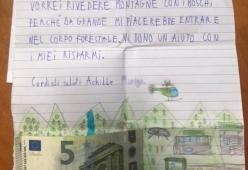 VORREI RIVEDERE MONTAGNE CON I BOSCHI
PERCHÉ DA GRANDE MI PIACEREBBE ENTRARE
NEL CORPO FORESTALE, VI DONO UN AIUTO CON
I MIEI RISPARMI.
Cordiali saluti Achille
5